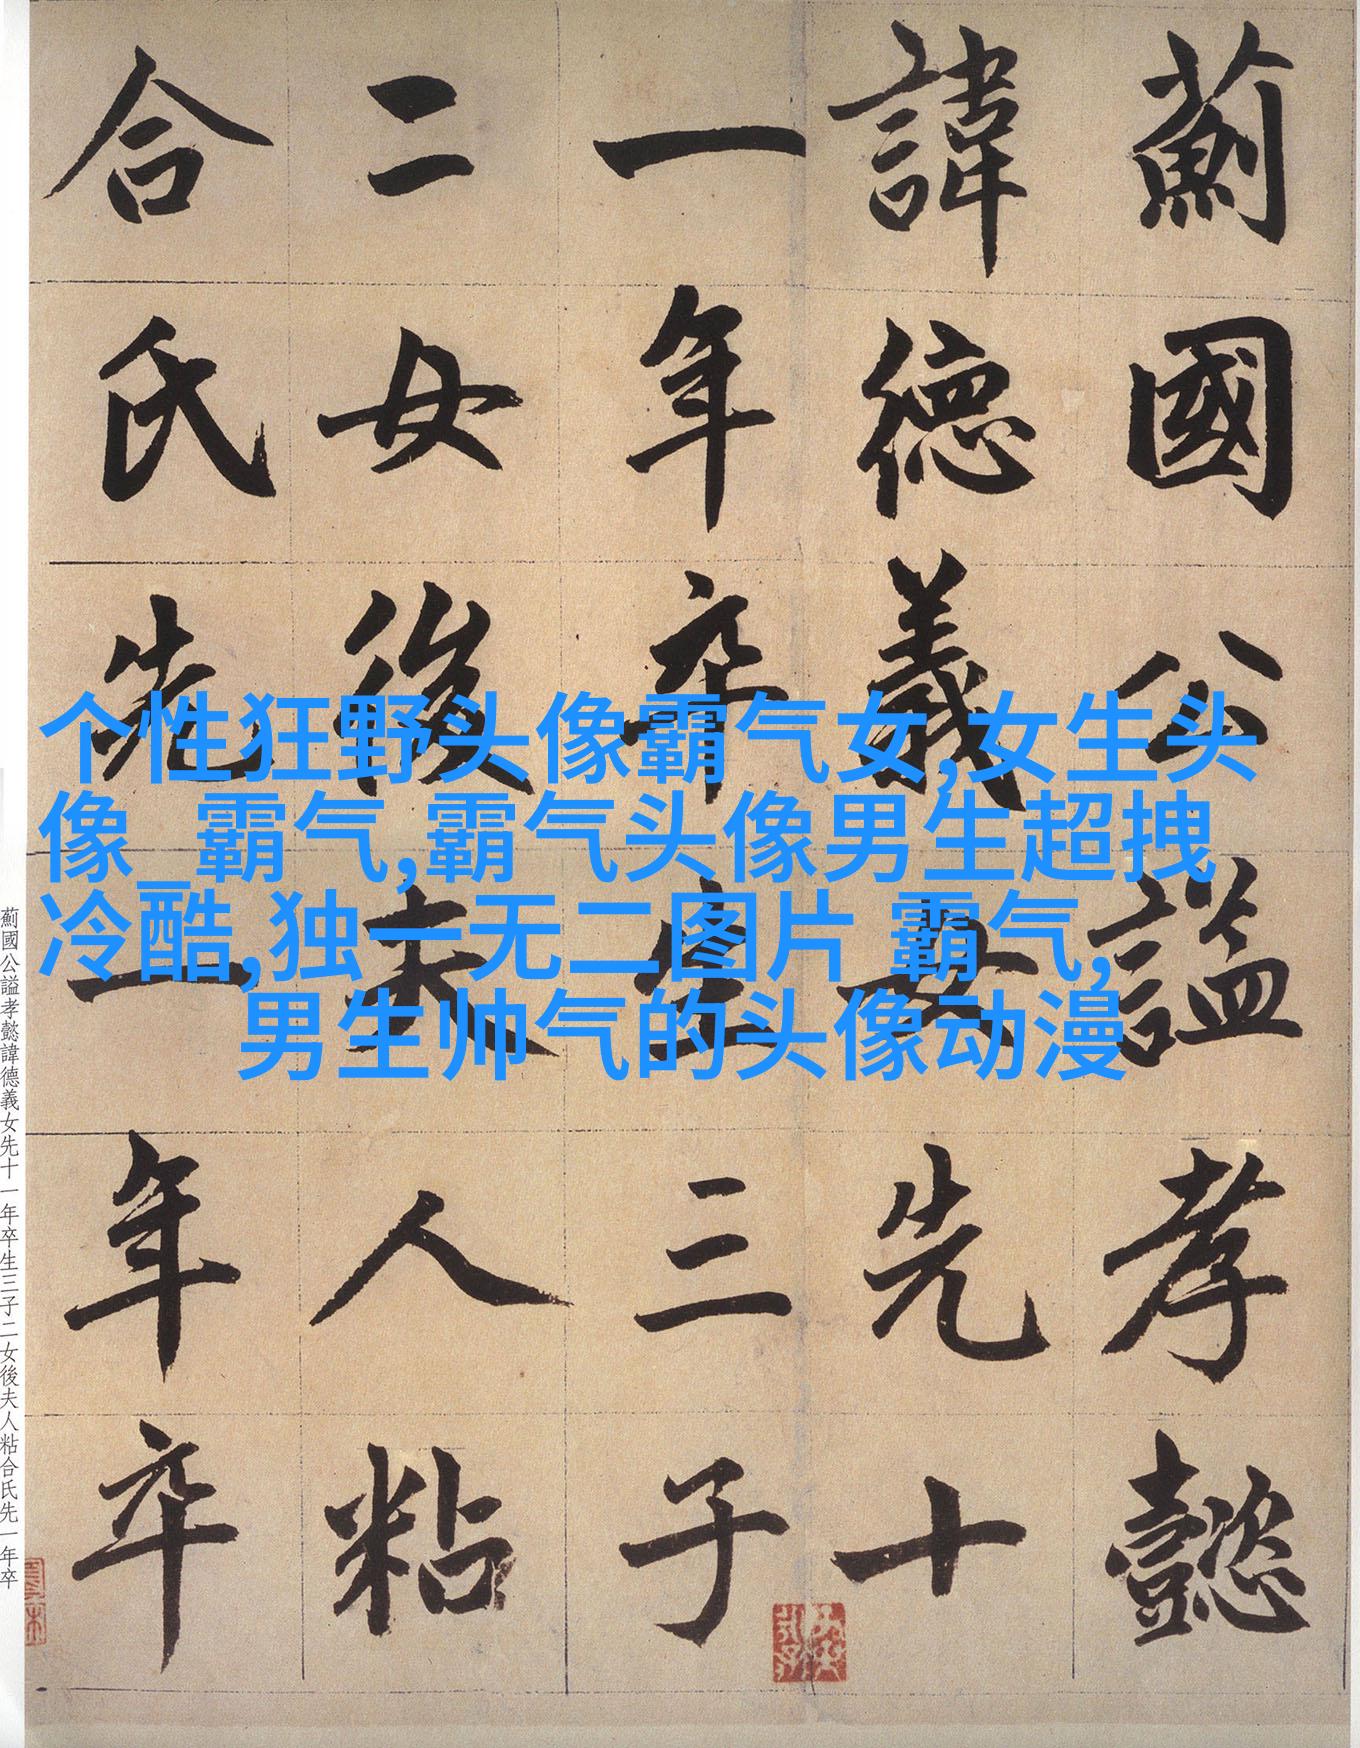 薊國公謚孝懿
諱德義女先十
一年卒生三子
二女後夫人粘
合氏先一年卒
个性狂野头像霸气女,女生头
像_霸气,霸气头像男生超拽
冷酷,独一无二图片 霸气,
男生帅气的头像动漫
薊國公謚孝懿諱德義女先十一年卒生三子二女後夫人粘合氏先一年卒